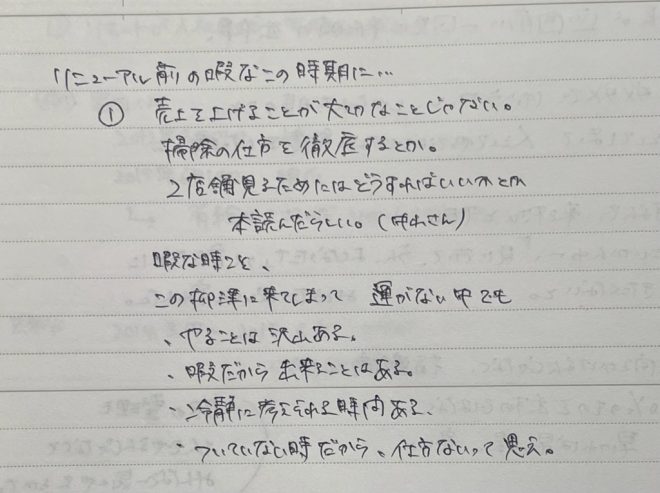 リニューアル前の暇なこの時期に…
① 売上を上げることが大切なことじゃない。
掃除の仕方を徹底するとか。
2店舗見るためにはどうすればいいかとか
本読んだらいい。(ゆれさん)
暇な時こそ、
この柳津に来てしまって 運がない中でも
、やることは沢山ある。
、暇だから出来ることはある。
、冷静に考えられる時間ある、
、ついていない時だから、仕方ないって思え。